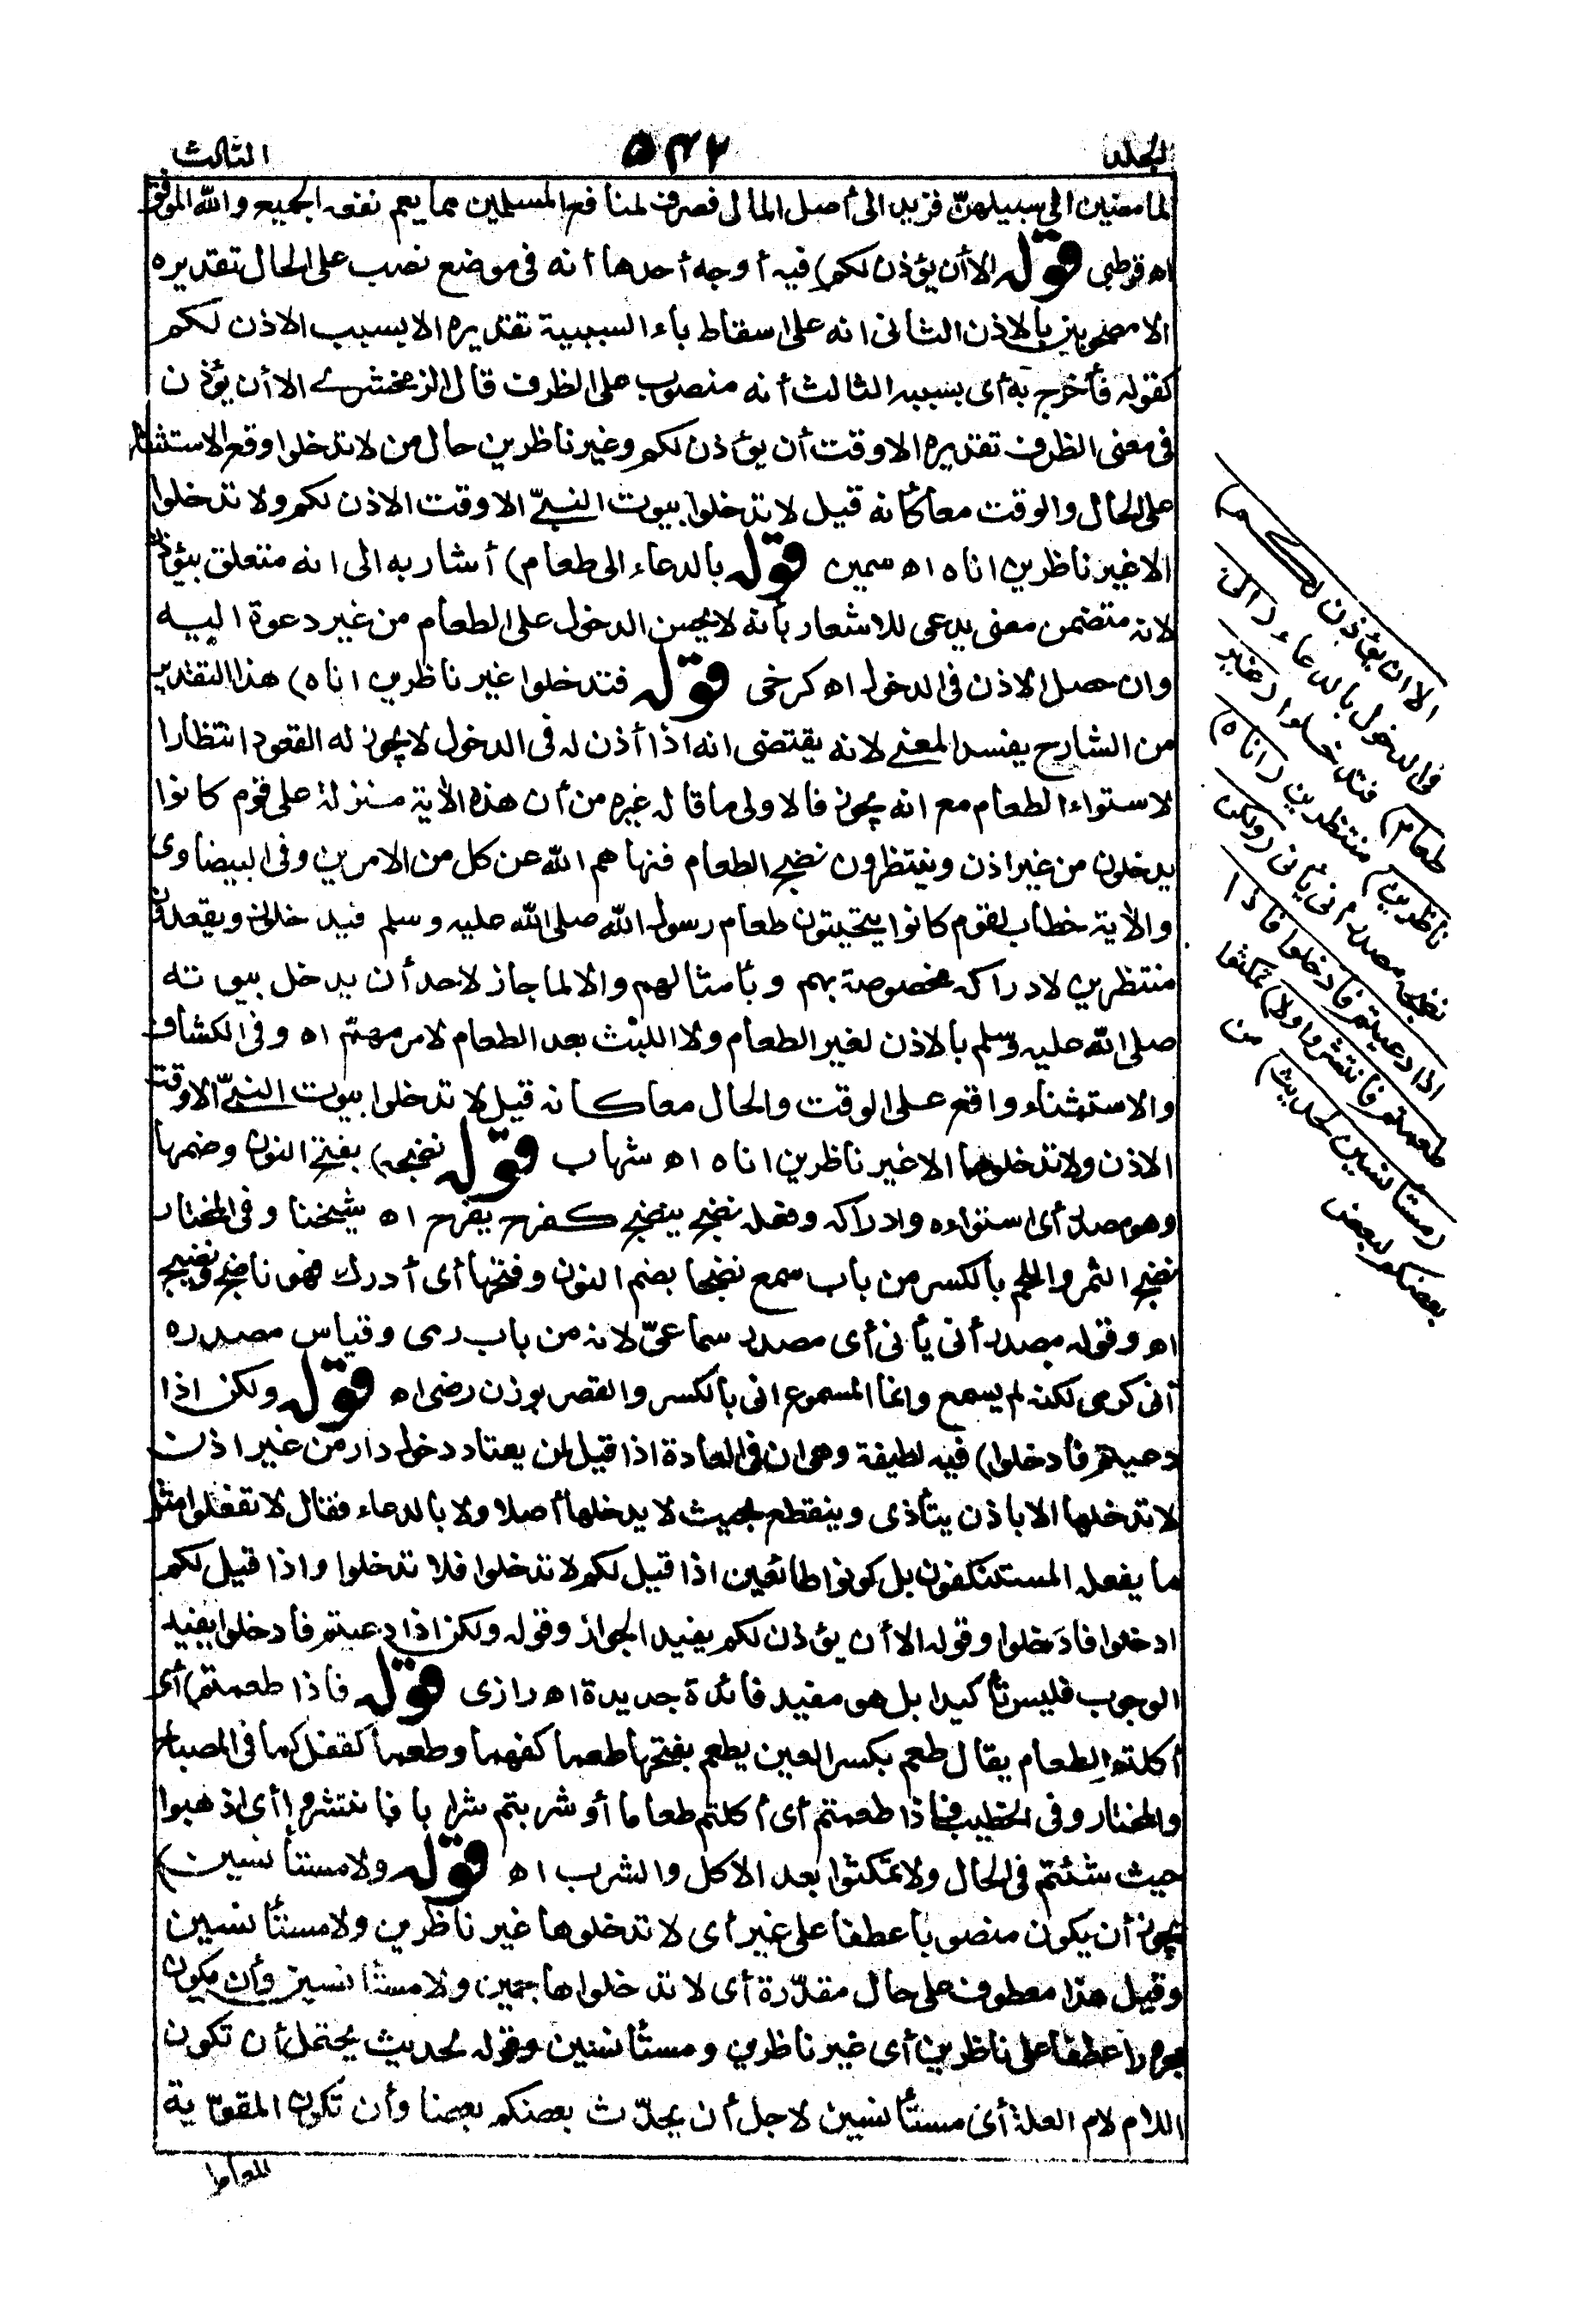 المجلد
٥٣٢
الثالث
لما مضين الى سبيلهنّ فزيد الى أصل المال فصرف لمنافع المسلمين مما يعم نفعه الجميع والله الموفق
اه قرطبى قوله الا أن يؤذن لكم) فيه أوجه أحدها أنه فى موضع نصب على الحال تقديره
الا مصحوبين بالاذن الثانى انه على اسقاط باء السببية تقديره الا بسبب الاذن لكم
كقوله فأخرج به أى بسببه الثالث أنه منصوب على الظرف قال الزمخشرى الا أن يؤذن
فى معنى الظرف تقديره الا وقت أن يؤذن لكم وغير ناظرين حال من لا تدخلوا وقع الاستثناء
على الحال والوقت معا كأنه قيل لا تدخلوا بيوت النبىّ الا وقت الاذن لكم ولا تدخلوا
الا غير ناظرين اناه اه سمين قوله بالدعاء الى طعام) أشار به الى انه متعلق بيؤذن
لانه متضمن معنى يدعى للاشعار بأنه لا يحسن الدخول على الطعام من غير دعوة اليه
وان حصل الاذن فى الدخول اه كرخى قوله فتدخلوا غير ناظرين اناه) هذا التقدير
من الشارح يفسد المعنى لانه يقتضى انه اذا أذن له فى الدخول لا يجوز له القعود انتظارا
لاستواء الطعام مع انه يجوز فالاولى ما قاله غيره من أن هذه الآية منزلة على قوم كانوا
يدخلون من غير اذن وينتظرون نضج الطعام فنهاهم الله عن كل من الامرين وفى البيضاوى
والآية خطاب لقوم كانوا يتحينون طعام رسول الله صلى الله عليه وسلم فيدخلون ويقعدون
منتظرين لادراكه مخصوصة بهم وبأمثالهم والا لما جاز لاحد أن يدخل بيوته
صلى الله عليه وسلم بالاذن لغير الطعام ولا اللبث بعد الطعام لامر مهتم اه وفى الكشاف
والاستثناء واقع على الوقت والحال معا كانه قيل لا تدخلوا بيوت النبىّ الا وقت
الاذن ولا تدخلوها الا غير ناظرين اناه اه شهاب قوله نضجه) بفتح النون وضمها
وهو مصدر أى استواءه وادراكه وفعله نضج ينضج كفرح يفرح اه شيخنا وفى المختار
نضج الثمر واللحم بالكسر من باب سمع نضجا بضم النون وفتحها أى أدرك فهو ناضج ونضيج
اه وقوله مصدر أنى يأنى أى مصدر سماعىّ لانه من باب رمى وقياس مصدره
أنى كرمى لكنه لم يسمع وانما المسموع انى بالكسر والقصر بوزن رضى اه قوله ولكن اذا
دعيتم فادخلوا) فيه لطيفة وهى ان فى العادة اذا قيل لمن يعتاد دخول دار من غير اذن
لا تدخلها الا باذن يتأذى وينقطع بحيث لا يدخلها أصلا ولا بالدعاء فقال لا تفعلوا مثل
ما يفعله المستنكفون بل كونوا طائعين اذا قيل لكم لا تدخلوا فلا تدخلوا واذا قيل لكم
ادخلوا فادخلوا وقوله الا أن يؤذن لكم يفيد الجواز وقوله ولكن اذا دعيتم فادخلوا يفيد
الوجوب فليس تأكيدا بل هو مفيد فائدة جديدة اه رازى قوله فاذا طعمتم) أى
أكلتم الطعام يقال طعم بكسر العين يطعم بفتحها طعما كفهما وطعما كقفل كما فى المصباح
والمختار وفى الخطيب فاذا طعمتم أى أكلتم طعاما أو شربتم شرابا فانتشروا أى اذهبوا
حيث شئتم فى الحال ولا تمكثوا بعد الاكل والشرب اه قوله ولا مستأنسين)
يجوز أن يكون منصوبا عطفا على غير أى لا تدخلوها غير ناظرين ولا مستأنسين
وقيل هذا معطوف على حال مقدّرة أى لا تدخلوا هاجمين ولا مستأنسين وأن يكون
مجرورا عطفا على ناظرين أى غير ناظرين ومستأنسين وقوله لحديث يحتمل أن تكون
اللام لام العلة أى مستأنسين لاجل أن يحدّث بعضكم بعضا وأن تكون المقوّية
الا ان يؤذن لكم)
فى الدخول بالدعاء (الى
طعام) فتدخلوا (غير
ناظرين) منتظرين (اناه)
نضجه مصدر أنى يأنى (ولكن
اذا دعيتم فادخلوا فاذا
طعمتم فانتشروا ولا) تمكثوا
(مستأنسين لحديث) من
بعضكم لبعض